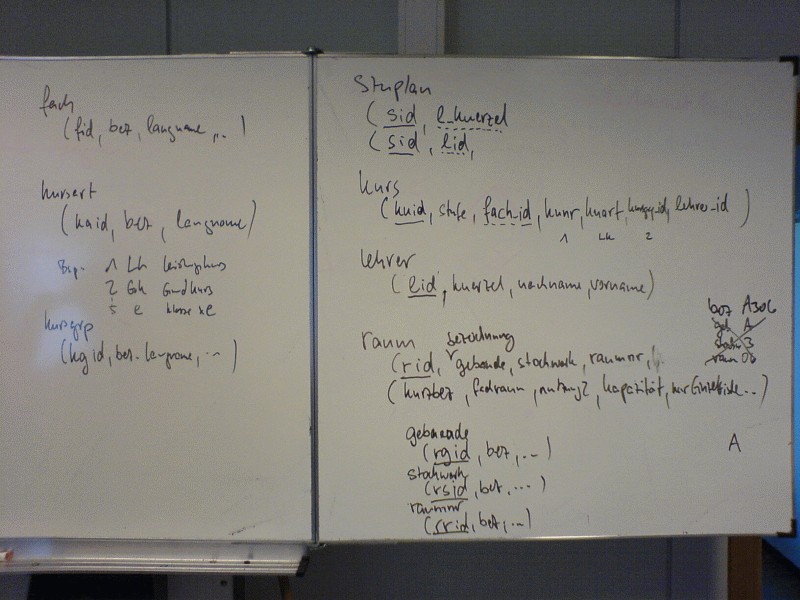 fach
(fid, bez, langname, ..)
kursart
(kaid, bez, langname)
Bsp. 1 Lk Leistungskurs
2 Gk Grundkurs
5 e klasse
kursgrp
(kgid, bez. langname, ...)
Stuplan
(sid, l_kuerzel
(sid, lid,
kurs
(kuid, stufe, fach_id, kunr, kuart, kursgrp_id, lehrer_id)
1 Lk 2
lehrer
(lid, kuerzel, nachname, vorname)
raum bezeichnung
(rid, gebaeude, stockwerk, raumnr,
(kurzbez, fachraum, nutzung?, kapazität, nur Einzeltische...)
bez A306
geb A
stockw 3
raum 06
gebaeude
(rgid, bez, ...)
stockwerk
(rsid, bez, ...)
raumnr
(rrid, bez, ...)
A